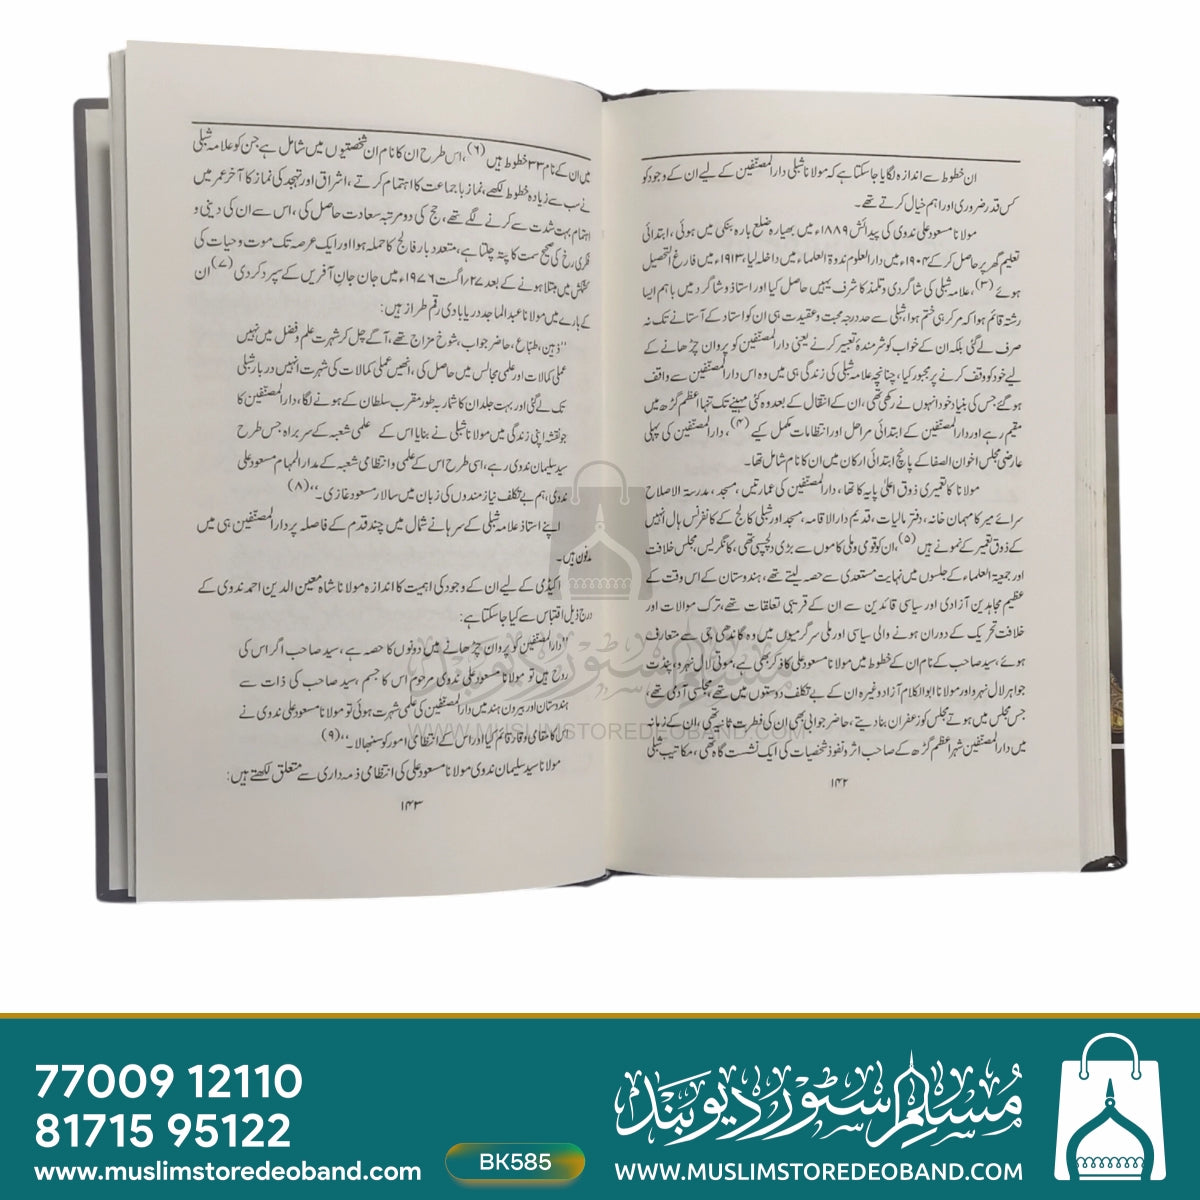 ان خطوط سے اندازہ لگایا جاسکتا ہے کہ مولانا شبلی دارالمصنّفین کے لیے ان کے وجود کو
کس قدر ضروری اور اہم خیال کرتے تھے۔
مولانا مسعود علی ندوی کی پیدائش ۱۸۸۹ء میں بھیارہ ضلع بارہ بنکی میں ہوئی، ابتدائی
تعلیم گھر پر حاصل کرکے ۱۹۰۲ء میں دارالعلوم ندوۃ العلماء میں داخلہ لیا، ۱۹۱۳ء میں فارغ التحصیل
ہوئے (۳)، علامہ شبلی کی شاگردی و تلمذ کا شرف یہیں حاصل کیا اور استاذ و شاگرد میں باہم ایسا
رشتہ قائم ہوا کہ مر کر ہی ختم ہوا، شبلی سے حد درجہ محبت و عقیدت ہی ان کو استاد کے آستانے تک نہ
صرف لے گئی بلکہ ان کے خواب کو شرمندۂ تعبیر کرنے یعنی دارالمصنّفین کو پروان چڑھانے کے
لیے خود کو وقف کرنے پر مجبور کیا، چنانچہ علامہ شبلی کی زندگی ہی میں وہ اس دارالمصنّفین سے واقف
ہوگئے جس کی بنیاد خود انہوں نے رکھی تھی، ان کے انتقال کے بعد وہ کئی مہینے تک تنہا اعظم گڑھ میں
مقیم رہے اور دارالمصنّفین کے ابتدائی مراحل اور انتظامات مکمل کیے (۴)، دارالمصنّفین کی پہلی
عارضی مجلس اخوان الصفا کے پانچ ابتدائی ارکان میں ان کا نام شامل تھا۔
مولانا کا تعمیری ذوق اعلیٰ پایہ کا تھا، دارالمصنّفین کی عمارتیں، مسجد، مدرسۃ الاصلاح
سرائے میر کا مہمان خانہ، دفتر مالیات، قدیم دارالاقامہ، مسجد اور شبلی کالج کے کانفرنس ہال انہیں
کے ذوق تعمیر کے نمونے ہیں (۵)، ان کو قومی و ملی کاموں سے بڑی دلچسپی تھی، کانگریس، مجلس خلافت
اور جمعیۃ العلماء کے جلسوں میں نہایت مستعدی سے حصہ لیتے تھے، ہندوستان کے اس وقت کے
عظیم مجاہدین آزادی اور سیاسی قائدین سے ان کے قریبی تعلقات تھے، ترک موالات اور
خلافت تحریک کے دوران ہونے والی سیاسی اور ملی سرگرمیوں میں وہ گاندھی جی سے متعارف
ہوئے، سید صاحب کے نام ان کے خطوط میں مولانا مسعود علی کا ذکر بھی ہے، موتی لال نہرو، پنڈت
جواہر لال نہرو اور مولانا ابوالکلام آزاد وغیرہ ان کے بے تکلف دوستوں میں تھے، مجلسی آدمی تھے،
جس مجلس میں ہوتے مجلس کو زعفران بنا دیتے، حاضر جوابی بھی ان کی فطرت ثانیہ تھی، ان کے زمانہ
میں دارالمصنّفین شہر اعظم گڑھ کے صاحب اثر و نفوذ شخصیات کی ایک نشست گاہ تھی، مکاتیب شبلی
۱۴۲
میں ان کے نام ۳۳ خطوط ہیں (۶)، اس طرح ان کا نام ان شخصیتوں میں شامل ہے جن کو علامہ شبلی
نے سب سے زیادہ خطوط لکھے، نماز باجماعت کا اہتمام کرتے، اشراق اور تہجد کی نماز کا آخر عمر میں
اہتمام بہت شدت سے کرنے لگے تھے، حج کی دو مرتبہ سعادت حاصل کی، اس سے ان کی دینی و
فکری رخ کی صحیح سمت کا پتہ چلتا ہے، متعدد بار فالج کا حملہ ہوا اور ایک عرصہ تک موت و حیات کی
کشمکش میں مبتلا ہونے کے بعد ۲۷/اگست ۱۹۶۷ء میں جان جانِ آفریں کے سپرد کردی (۷) ان
کے بارے میں مولانا عبدالماجد دریابادی رقم طراز ہیں:
’’ذہین، طباع، حاضر جواب، شوخ مزاج تھے، آگے چل کر شہرت علم و فضل میں نہیں
عملی کمالات اور علمی مجالس میں حاصل کی، انھیں عملی کمالات کی شہرت انہیں دربار شبلی
تک لے گئی اور بہت جلد ان کا شمار بہ طور مقرب سلطان کے ہونے لگا، دارالمصنّفین کا
جو نقشہ اپنی زندگی میں مولانا شبلی نے بنایا اس کے علمی شعبہ کے سربراہ جس طرح
سید سلیمان ندوی رہے، اسی طرح اس کے علمی و انتظامی شعبہ کے مدارالمہام مسعود علی
ندوی، ہم بے تکلف نیازمندوں کی زبان میں سالار مسعود غازی۔‘‘ (۸)
اپنے استاذ علامہ شبلی کے سرہانے شمال میں چند قدم کے فاصلہ پر دارالمصنّفین ہی میں
مدفون ہیں۔
اکیڈمی کے لیے ان کے وجود کی اہمیت کا اندازہ مولانا شاہ معین الدین احمد ندوی کے
درج ذیل اقتباس سے کیا جاسکتا ہے:
’’دارالمصنّفین کو پروان چڑھانے میں دونوں کا حصہ ہے، سید صاحب اگر اس کی
روح ہیں تو مولانا مسعود علی ندوی مرحوم اس کا جسم، سید صاحب کی ذات سے
ہندوستان اور بیرون ہند میں دارالمصنّفین کی علمی شہرت ہوئی تو مولانا مسعود علی ندوی نے
اس کا مقامی وقار قائم کیا اور اس کے انتظامی امور کو سنبھالا۔‘‘ (۹)
مولانا سید سلیمان ندوی مولانا مسعود علی کی انتظامی ذمہ داری سے متعلق لکھتے ہیں:
۱۴۳
مسلم سٹور دیوبند
WWW.MUSLIMSTOREDEOBAND.COM
77009 12110
81715 95122
www.muslimstoredeoband.com
BK585
مسلم سٹور دیوبند
WWW.MUSLIMSTOREDEOBAND.COM